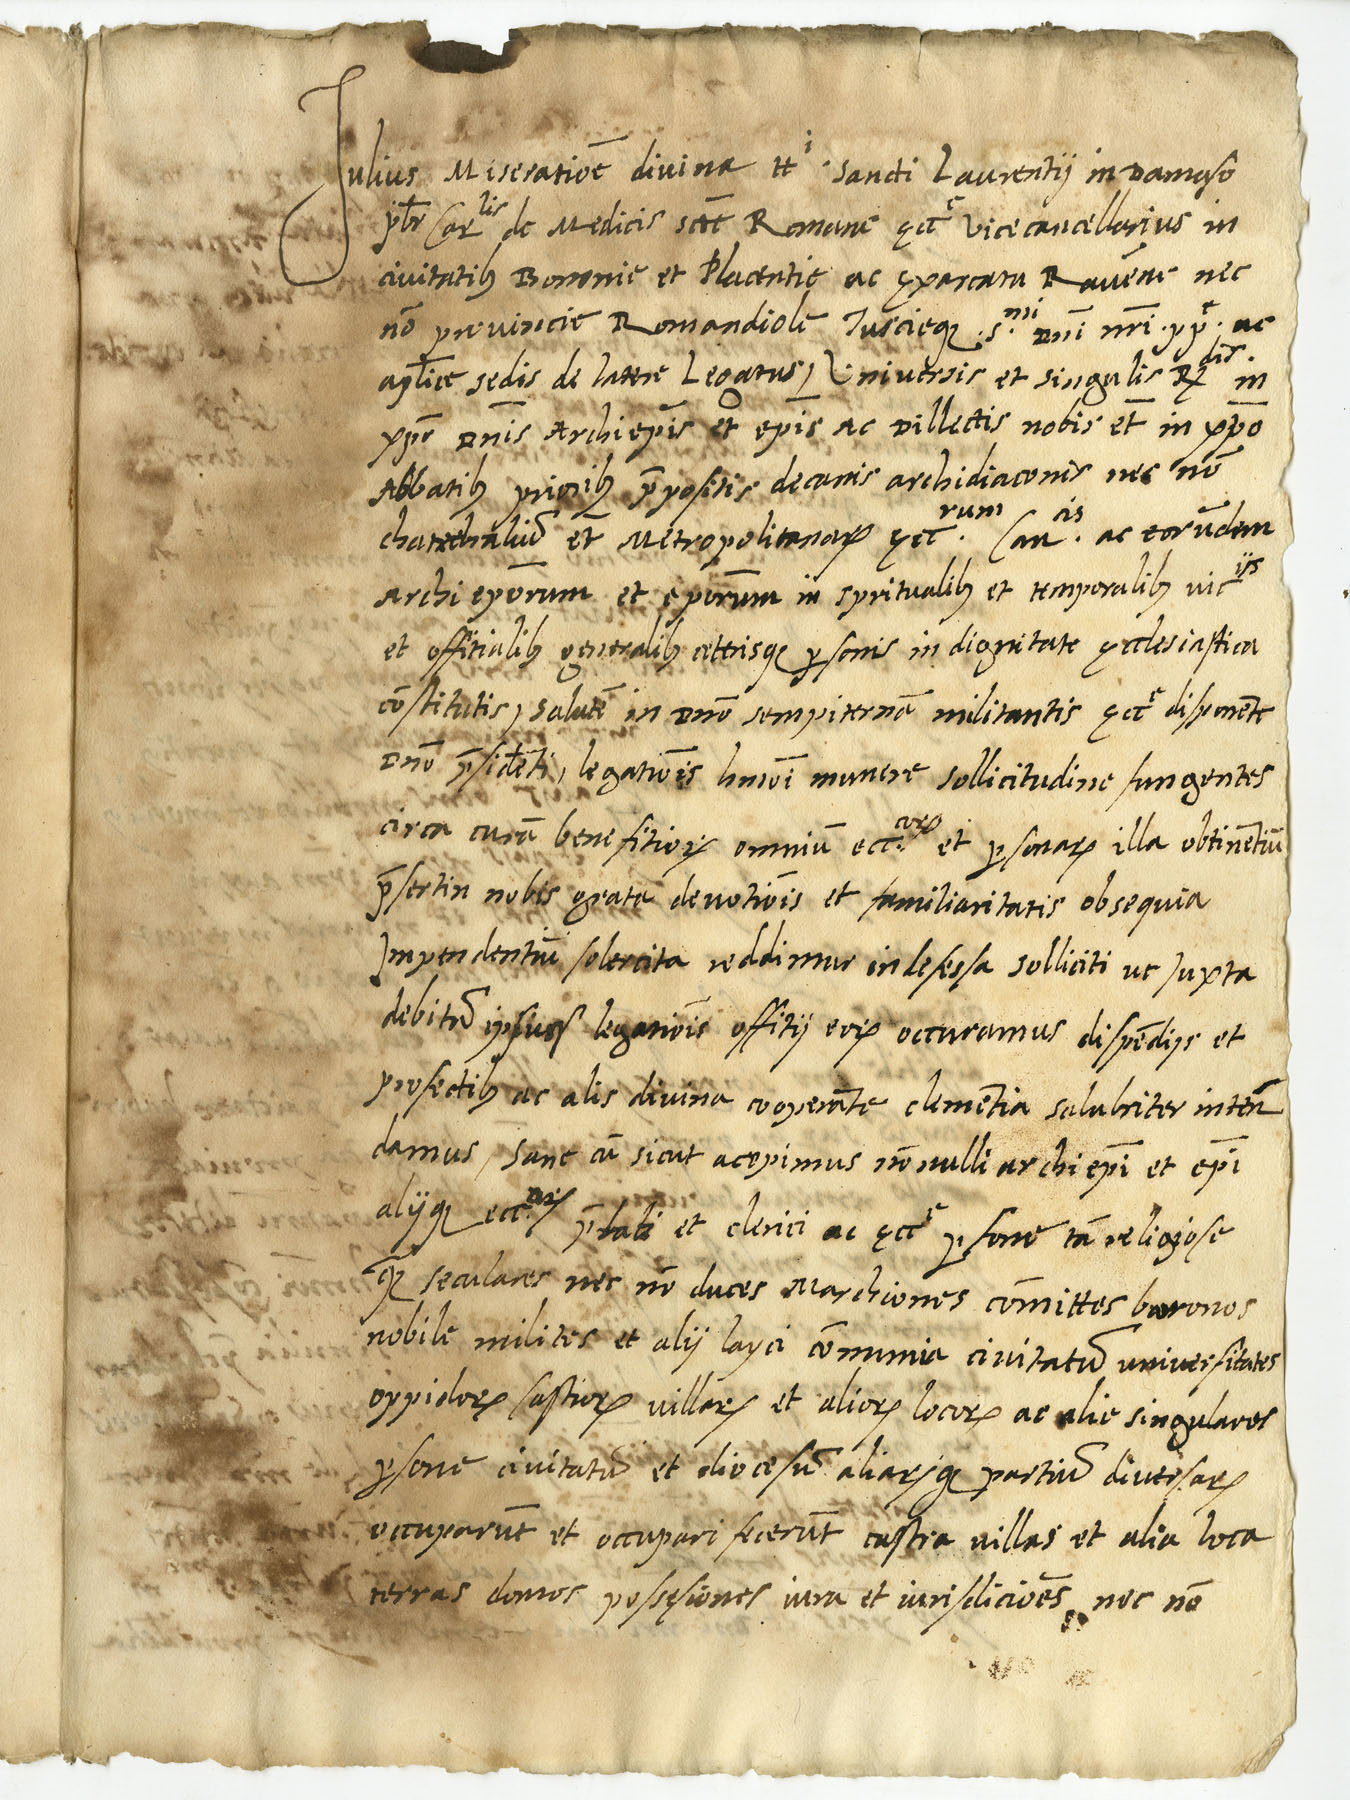 Julius Miseratiōe divina ttⁱ sancti Laurentij in Damaso
p̄br Carˡⁱˢ de Medicis sctē Romane ęccᵉ vicecancellarius in
civitatibꝫ Bononie et Placentie ac ęxarcatu Ravēne nec
nō provincie Romandiole Tusciegꝫ .s.ᵐⁱ Dn̄i nr̄i .pp̄ᵉ. ac
ap̄lice sedis de latere Legatus, Universis et singulis Rᵈⁱˢ. in
xp̄o Dn̄is Archiep̄is et ep̄is ac Dillectis nobis et̄ in xp̄o
Abbatibꝫ prioribꝫ p̄positis decanis archidiaconis nec nō
chatedraliū et̄ Metropolitanaꝝ ęcc.ʳᵘᵐ Can.ᶜⁱˢ ac eorūdem
Archiepōrum et epōrum in spritualibꝫ et temporalibꝫ vicⁱʲˢ
et offitialibꝫ generalibꝫ ceterisqꝫ ꝑsonis in dignitate ęcclesiastica
cōstitutis, salutē in Dn̄o sempiternā militantis ęccᵉ disponente
Dn̄o p̄sidēti, legatiōis hmōi munere sollicitudine fungentes
circa curā benefitioꝝ omniū ecc.ᶜᵒʳꝝ et ꝑsonaꝝ illa obtinētiū
p̄sertin nobis grata devotiōis et familiaritatis obsequia
Impendentiū solercita reddimur indefessa solliciti ut Juxta
debitū ipsius legatiōis offitij eoꝝ occuramus dispēdijs et
profectibꝫ ac alis divina cooperāte clemētia salubriter inten̄
damus, sane cū sicut acepimus nōnulli archiep̄i et ep̄i
alijqꝫ ecc.ᵃʳꝝ p̄lati et clerici ac ęccᵉ ꝑsone tā religiose
qꝫ seculares nec nō duces Marchiones cōmittes baronos
nobile milites et alij layci cōmunia civitatū universitates
oppidoꝝ castroꝝ villaꝝ et alioꝝ locoꝝ ac alie singulares
ꝑsone civitatū et diocesū aliaꝝqꝫ partiū diversaꝝ
occuparūt et occupari fecerūt castra villas et alia loca
terras domos possęsiones iura et iurisdiciōes nec nō